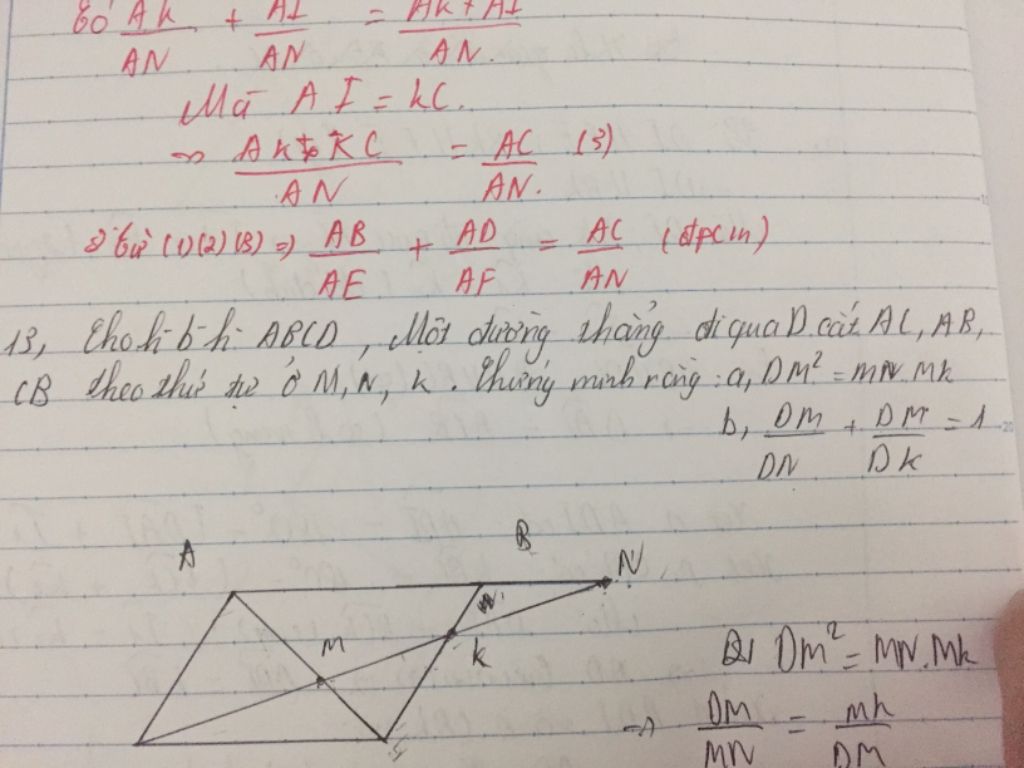 Có AK/AN + AI/AN = AK+AI/AN.
Mà AI = KC.
AK+KC/AN = AC/AN. (3)
Từ (1)(2)(3) => AB/AE + AD/AF = AC/AN (đpcm)
13, Cho h·b·h· ABCD, Một đường thẳng đi qua D cắt AC, AB,
CB theo thứ tự ở M, N, K. Chứng minh rằng: a, DM² = MN.MK
b, DM/DN + DM/DK = 1
A B N
M K
DM² = MN.MK
-> DM/MN = MK/DM